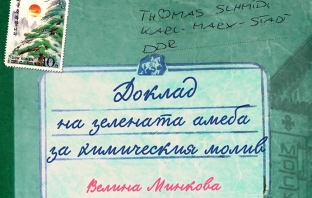 THOMAS SCHMIDT
KARL-MARX-STADT
DDR
10
Доклад
на зелената амеба
за химическия молив
Велина Минкова